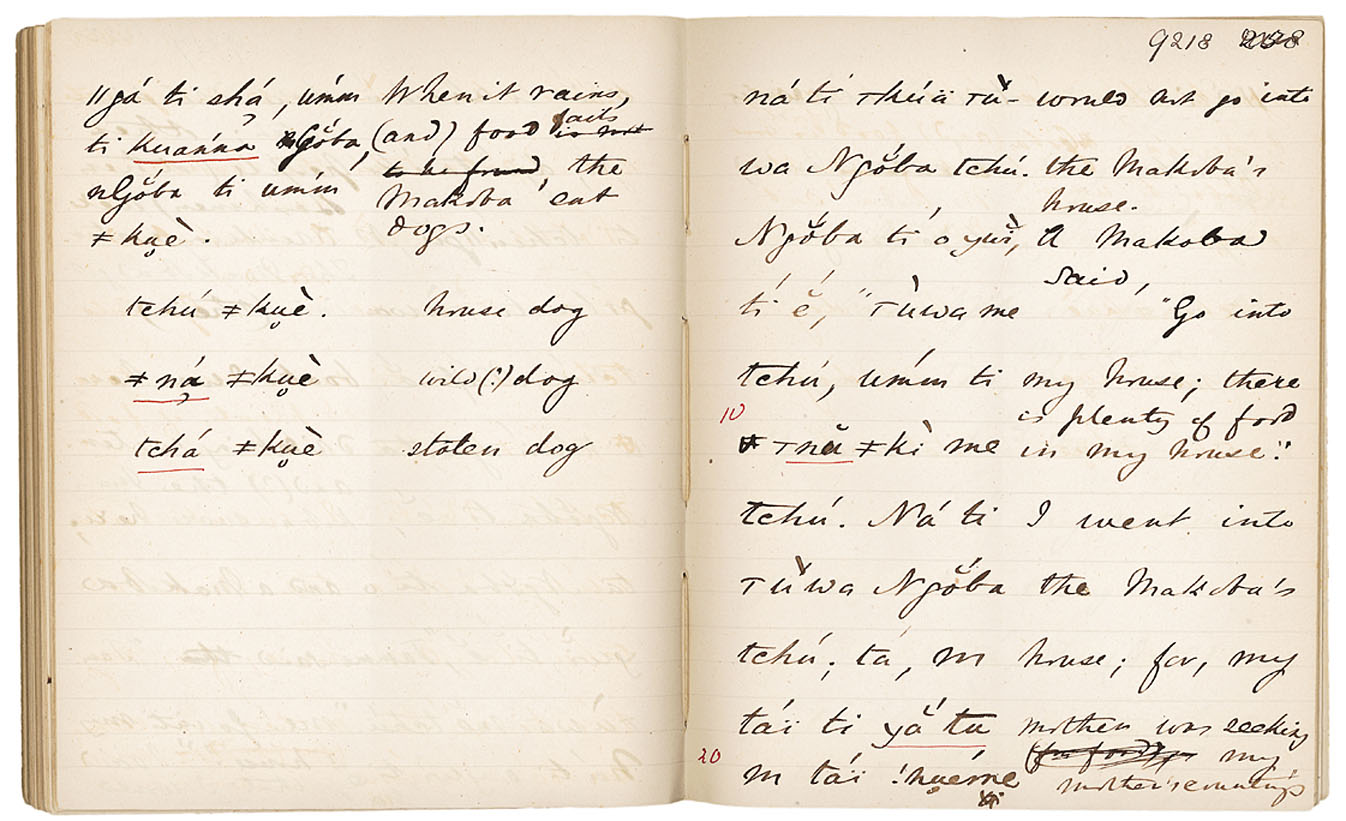 ǁgá ti shá, úmm When it rains,
ti kuánna nGŏ́ba, (and) food fails is not
to be found, the
nGŏ́ba ti umm Makoba eat
ǂkuè. dogs.
tchú ǂkuè. house dog
ǂná ǂkuè wild (?) dog
tchá ǂkuè stolen dog
9218
ná ti ꞇkúä ꞇù- would not go into
wa Ngŏ́ba tchú. the Makoba's
house.
Ngŏ́ba ti ó yuì, A Makoba
said,
tí ĕ́, "ꞇùwa me "Go into
tchú, úmm ti my house; there
10 is plenty of food
ꞇnă ǂkì me in my house."
tchú. Ná ti I went into
ꞇùwa Ngŏ́ba the Makoba's
tchú; tá, m house; for, my
táï ti yắ tu mother was seeking
20 (for food) my
m táï !nuéme mother's country's